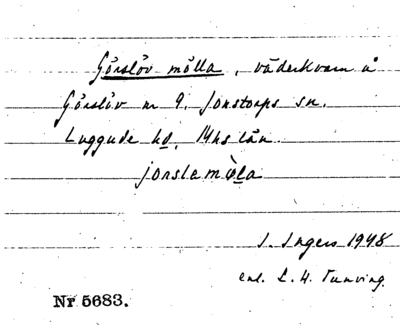 Görslöv mölla, väderkvarn å
Görslöv nr 9, Jonstorps sn.
Luggude hd, Mhs län.
jorslemöla
I. Ingers 1948
enl. L. H. Tunving.
Nr 5683.